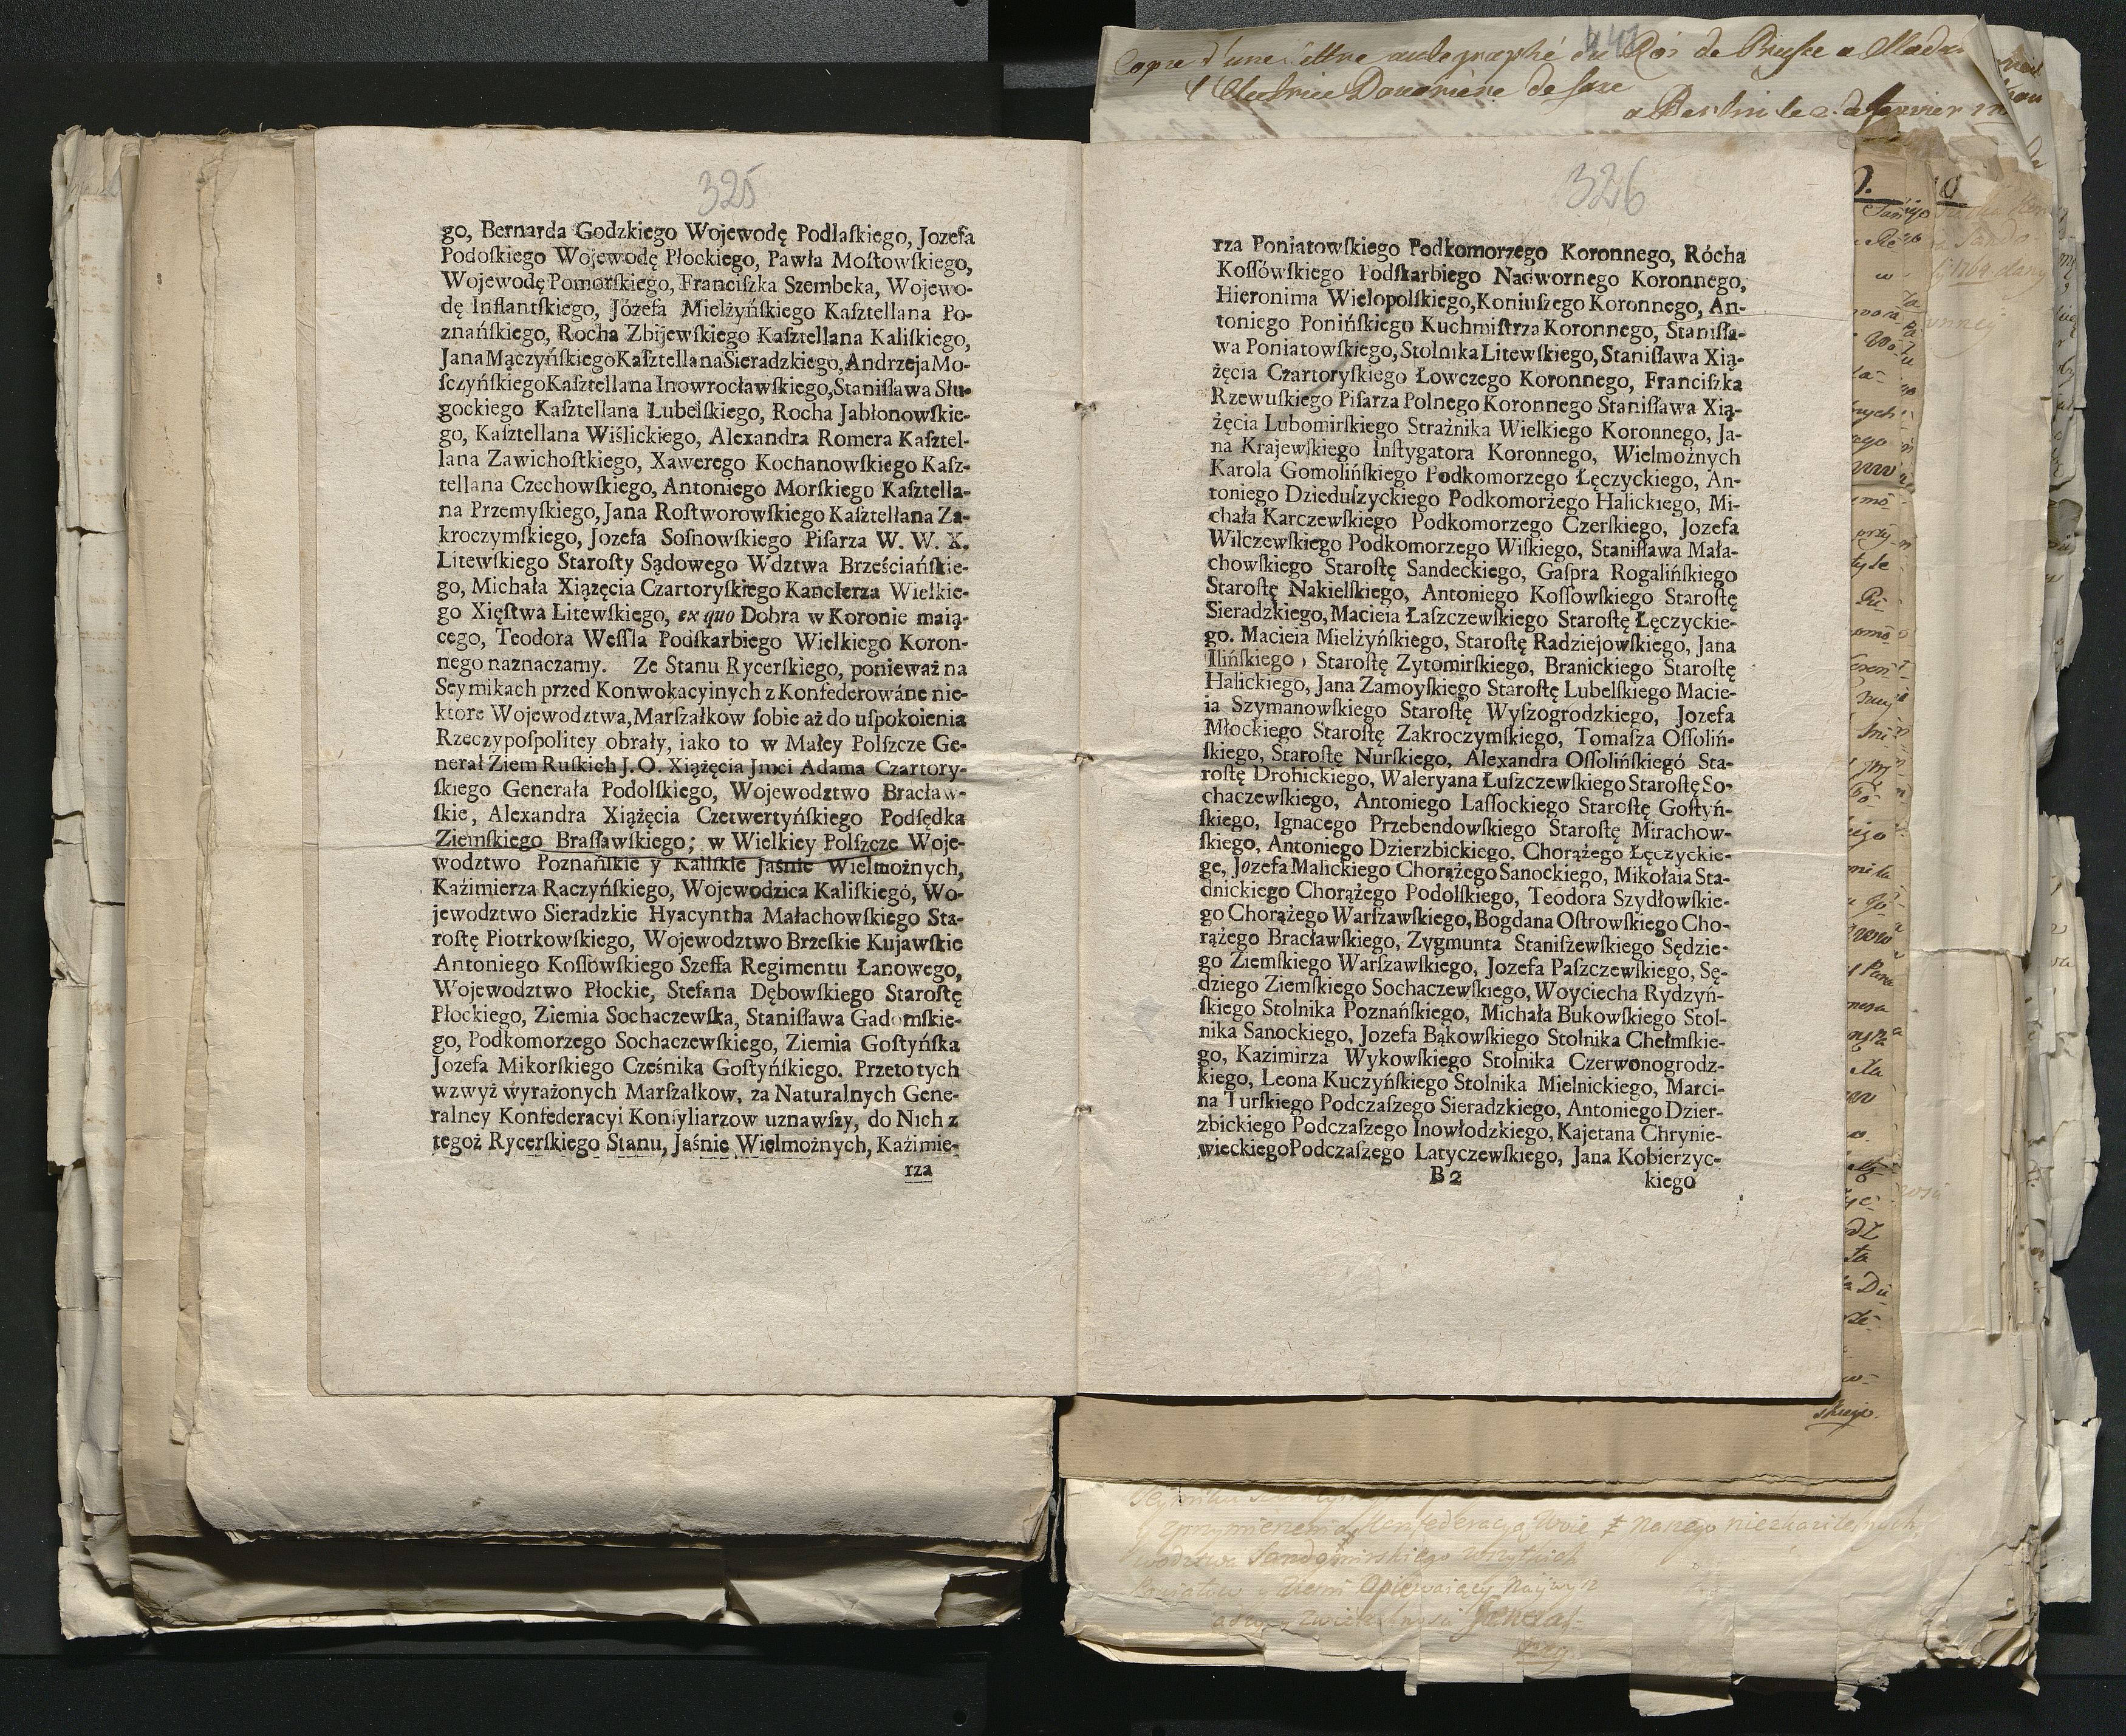 325
go, Bernarda Godzkiego Wojewodę Podlaſkiego, Jozefa
Podoſkiego Wojewodę Płockiego, Pawła Moſtowſkiego,
Wojewodę Pomorſkiego, Franciſzka Szembeka, Wojewo-
dę Inflantſkiego, Józefa Mielżyńſkiego Kaſztellana Po-
znańſkiego, Rocha Zbijewſkiego Kaſztellana Kaliſkiego,
Jana Mączyńſkiego Kaſztellana Sieradzkiego, Andrzeja Mo-
ſczyńſkiego Kaſztellana Inowrocławſkiego, Staniſława Słu-
gockiego Kaſztellana Lubelſkiego, Rocha Jabłonowſkie-
go, Kaſztellana Wiślickiego, Alexandra Romera Kaſztel-
lana Zawichoſtkiego, Xawerego Kochanowſkiego Kaſz-
tellana Czechowſkiego, Antoniego Morſkiego Kaſztella-
na Przemyſkiego, Jana Roſtworowſkiego Kaſztellana Za-
kroczymſkiego, Jozefa Soſnowſkiego Piſarza W. W. X.
Litewſkiego Staroſty Sądowego Wdztwa Brześciańſkie-
go, Michała Xiązęcia Czartoryſkiego Kanclerza Wielkie-
go Xięſtwa Litewſkiego, ex quo Dobra w Koronie maią-
cego, Teodora Weſſla Podſkarbiego Wielkiego Koron-
nego naznaczamy. Ze Stanu Rycerſkiego, ponieważ na
Seymikach przed Konwokacyinych z Konfederowáne nie-
ktore Wojewodztwa, Marſzałkow ſobie aż do uſpokoienia
Rzeczypoſpolitey obrały, iako to w Małey Polſzcze Ge-
nerał Ziem Ruſkich J. O. Xiążęcia Jmci Adama Czartory-
ſkiego Generała Podolſkiego, Wojewodztwo Bracław-
ſkie, Alexandra Xiążęcia Czetwertyńſkiego Podſędka
Ziemſkiego Braſławſkiego; w Wielkiey Polſzcze Woje-
wodztwo Poznańſkie y Kaliſkie Jaśnie Wielmożnych,
Kaźimierza Raczyńſkiego, Wojewodzica Kaliſkiegó, Wo-
jewodztwo Sieradzkie Hyacyntha Małachowſkiego Sta-
roſtę Piotrkowſkiego, Wojewodztwo Brzeſkie Kujawſkie
Antoniego Koſſowſkiego Szeffa Regimentu Łanowego,
Wojewodztwo Płockie, Stefana Dębowſkiego Staroſtę
Płockiego, Ziemia Sochaczewſka, Staniſława Gadomſkie-
go, Podkomorzego Sochaczewſkiego, Ziemia Goſtyńſka
Jozefa Mikorſkiego Cześnika Goſtyńſkiego. Przeto tych
wzwyż wyrażonych Marſzałkow, za Naturalnych Gene-
ralney Konfederacyi Konſyliarzow uznawſzy, do Nich z
tegoż Rycerſkiego Stanu, Jaśnie Wielmożnych, Kaźimie-
rza
326
rza Poniatowſkiego Podkomorzego Koronnego, Rócha
Koſſówſkiego Podſkarbiego Nadwornego Koronnego,
Hieronima Wielopolſkiego, Koniuſzego Koronnego, An-
toniego Ponińſkiego Kuchmiſtrza Koronnego, Staniſła-
wa Poniatowſkiego, Stolnika Litewſkiego, Staniſława Xią-
żęcia Czartoryſkiego Łowczego Koronnego, Franciſzka
Rzewuſkiego Piſarza Polnego Koronnego Staniſława Xią-
żęcia Lubomirſkiego Strażnika Wielkiego Koronnego, Ja-
na Krajewſkiego Inſtygatora Koronnego, Wielmożnych
Karola Gomolińſkiego Podkomorzego Łęczyckiego, An-
toniego Dzieduſzyckiego Podkomorżego Halickiego, Mi-
chała Karczewſkiego Podkomorzego Czerſkiego, Jozefa
Wilczewſkiego Podkomorzego Wiſkiego, Staniſława Mała-
chowſkiego Staroſtę Sandeckiego, Gaſpra Rogalińſkiego
Staroſtę Nakielſkiego, Antoniego Koſſowſkiego Staroſtę
Sieradzkiego, Macieia Łaſzczewſkiego Staroſtę Łęczyckie-
go. Macieia Mielżyńſkiego, Staroſtę Radziejowſkiego, Jana
Ilińſkiego, Staroſtę Zytomirſkiego, Branickiego Staroſtę
Halickiego, Jana Zamoyſkiego Staroſtę Lubelſkiego Macie-
ia Szymanowſkiego Staroſtę Wyſzogrodzkiego, Jozefa
Młockiego Staroſtę Zakroczymſkiego, Tomaſza Oſſoliń-
ſkiego, Staroſtę Nurſkiego, Alexandra Oſſolińſkiegó Sta-
roſtę Drohickiego, Waleryana Łuſzczewſkiego Staroſtę So-
chaczewſkiego, Antoniego Laſſockiego Staroſtę Goſtyń-
ſkiego, Ignacego Przebendowſkiego Staroſtę Mirachow-
ſkiego, Antoniego Dzierzbickiego, Chorążego Łęczyckie-
ge, Jozefa Malickiego Chorążego Sanockiego, Mikołaia Sta-
dnickiego Chorążego Podolſkiego, Teodora Szydłowſkie-
go Chorążego Warſzawſkiego, Bogdana Oſtrowſkiego Cho-
rążego Bracławſkiego, Zygmunta Staniſżewſkiego Sędzie-
go Ziemſkiego Warſzawſkiego, Jozefa Paſzczewſkiego, Sę-
dziego Ziemſkiego Sochaczewſkiego, Woyciecha Rydzyń-
ſkiego Stolnika Poznańſkiego, Michała Bukowſkiego Stol-
nika Sanockiego, Jozefa Bąkowſkiego Stolnika Chełmſkie-
go, Kazimirza Wykowſkiego Stolnika Czerwonogrodz-
kiego, Leona Kuczyńſkiego Stolnika Mielnickiego, Marci-
na Turſkiego Podczaſzego Sieradzkiego, Antoniego Dzier-
zbickiego Podczaſzego Inowłodzkiego, Kajetana Chrynie-
wieckiego Podczaſzego Latyczewſkiego, Jana Kobierzyc-
B 2 kiego